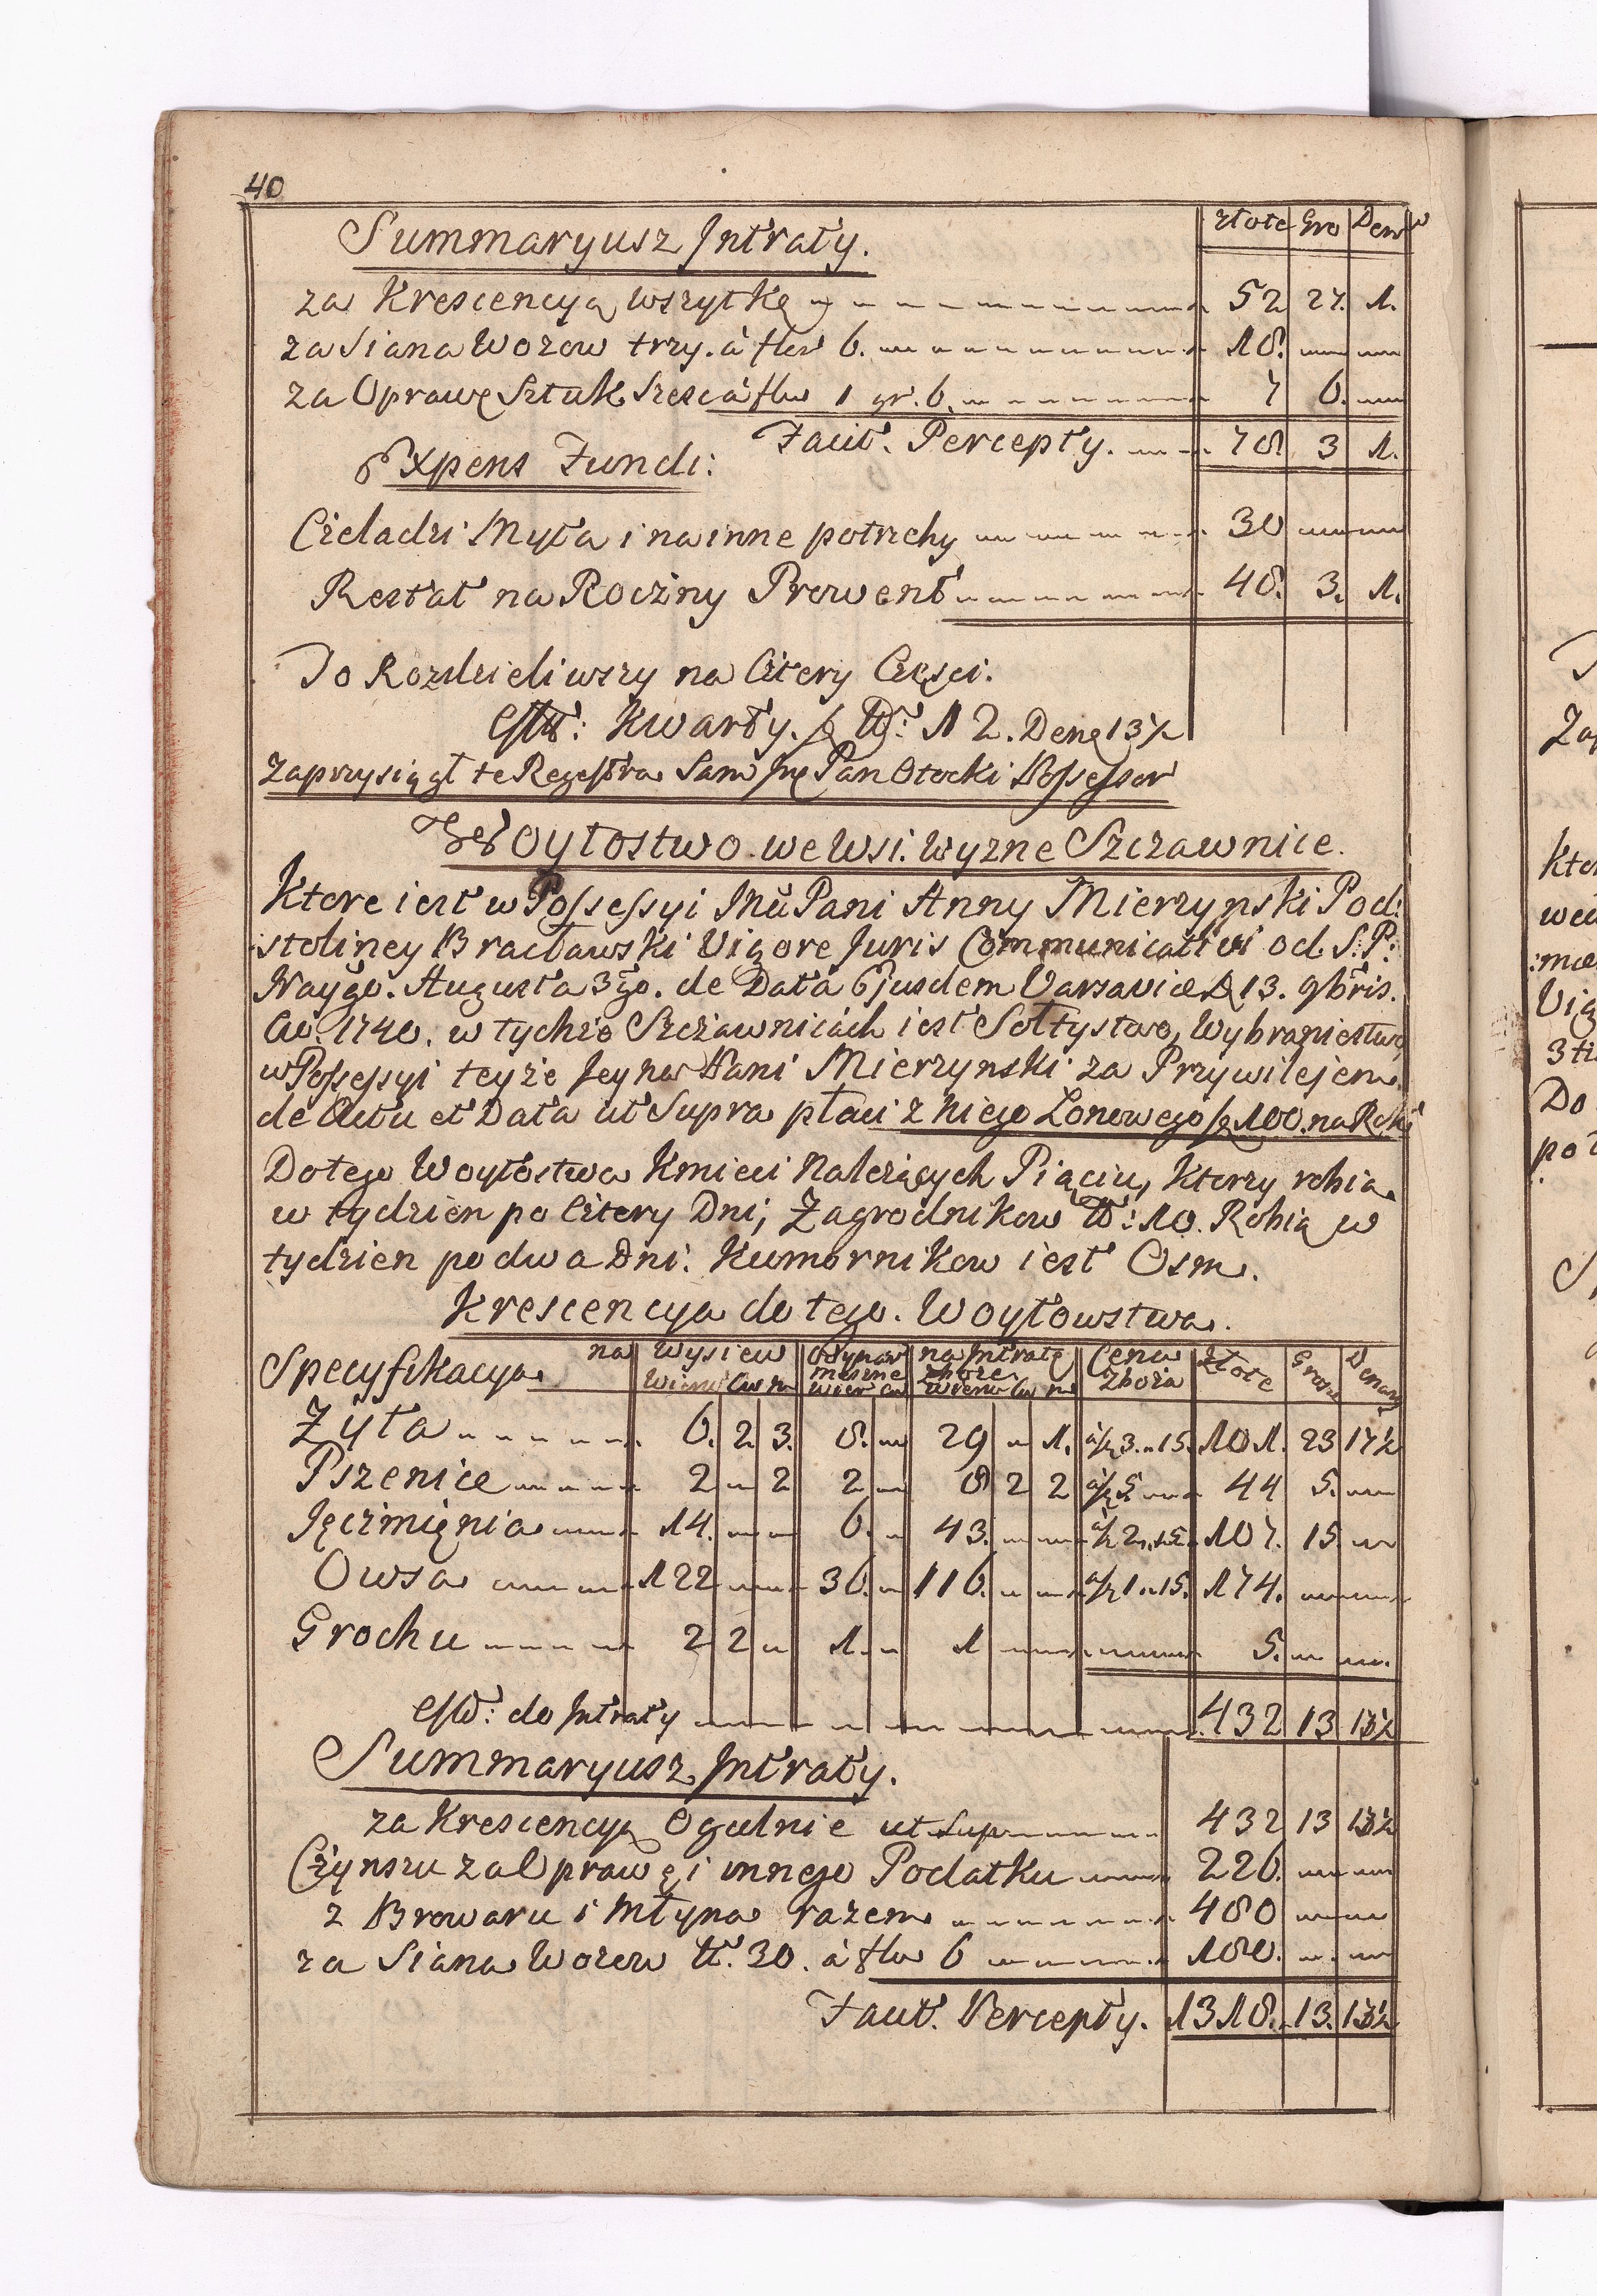 40
Summaryusz Intraty. złote Gro Den
za Krescencyą wszytkę 52 27. 1.
za Siana Wozow trzy. à flor 6. 18.
za Oprawę Sztuk Szesc à flor 1 gr. 6. 7 6.
Facit. Percepty. 78 3 1.
Expens Fundi:
Czeladzi Myta i na inne potrzeby 30
Restat na Roczny Prowent 48. 3. 1.
To Rozdzieliwszy na Cztery Częsci.
Kwarty. 12. Dena 13½
Zaprzysiągł te Regestra Sam Pan Otocki Possessor
Woytostwo we Wsi. Wyzne Szczawnice.
Ktore iest w Possessyi Pani Anny Mierzynski Pod:
stoliney Bractawski Vigore Juris Communicativi od S. P.
Naygo. Augusta 3go. de Data Ejusdem Varsaviæ D 13. 9bris.
Ao. 1740. w tychże Szczawnicach iest Sołtystwo, Wybraniestwo
w Possessyi teyże Jeyne Pani Mierzynski za Przywilejem
de Actu et Data ut Supra płaci z niego Łonowego 100. na Rok
Do tego Woytostwa Kmieci Nalezących Piąciu, Ktorzy robią
w tydzien po Cztery Dni; Zagrodnikow No: 10. Robią w
tydzien po dwa Dni. Kumornikow iest Osm.
Krescencya do tego. Woytowstwa.
Specyfikacya na Wysiew na Intratę Cena Złote Grosze Denary
Meszne zboże Zboża
Żyta 6. 2 3. 8. 29 1. 3. 15. 101. 23 17½
Pszenice 2 2 2 8 2 2 5 44 5.
Jęczmięnia 14. 6. 43. 2. 15. 107. 15
Owsa 122 36. 116. 1. 15. 174.
Grochu 2 2 1. 1 5.
do Intraty 432 13 13½
Summaryusz Intraty.
za Krescencyą Ogulnie ut Supr 432 13 13½
Czynszu za Oprawę i innego Podatku 226.
z Browaru i Młyna razem 480
za Siana Wozow No. 30. à flor 6 180.
Facit. Percepty. 1318. 13. 13½